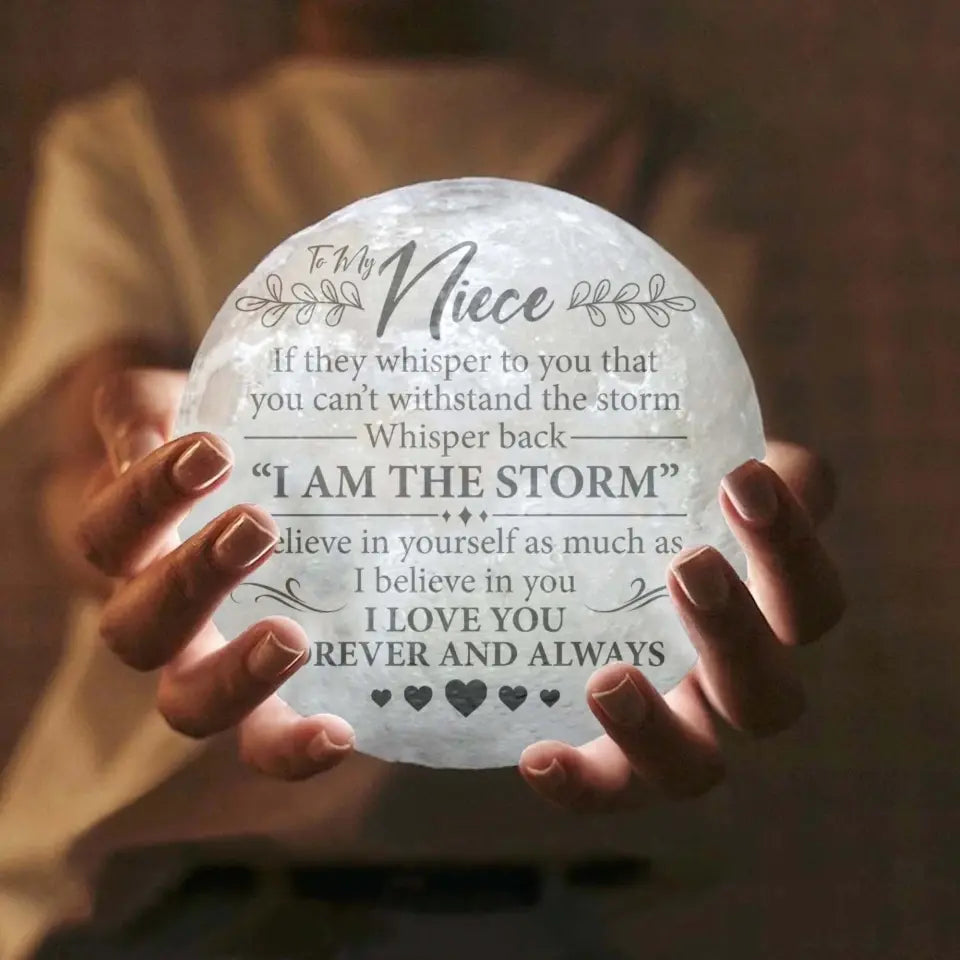 To My Niece
If they whisper to you that
you can't withstand the storm
Whisper back
“I AM THE STORM”
elieve in yourself as much as
I believe in you
I LOVE YOU
OREVER AND ALWAYS